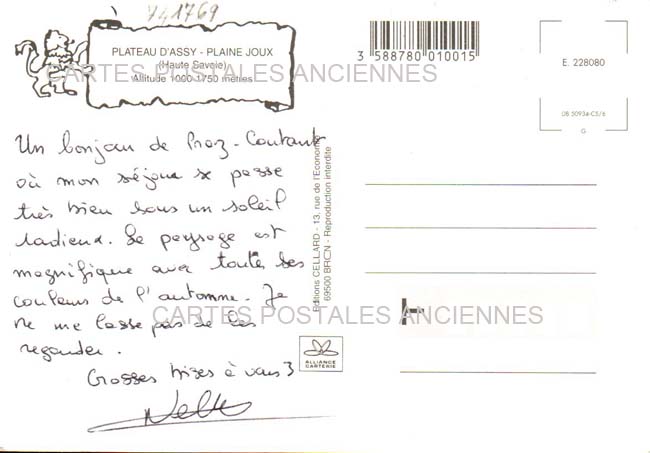 741769
PLATEAU D'ASSY - PLAINE JOUX
(Haute Savoie)
Altitude 1000-1750 mètres
3 588780 010015
E. 228080
08 5093e-C5/6
G
CARTES POSTALES ANCIENNES
Un bonjour de Praz-Coutant
où mon séjour se passe
très bien sous un soleil
radieux. Le paysage est
magnifique avec toutes ses
couleurs de l'automne. Je
ne me lasse pas de les
regarder.
Grosses bises à vous 3
Editions CELLARD - 13, rue de l'Economie
69500 BRON - Reproduction interdite
ALLIANCE
CARTERIE
CARTES POSTALES ANCIENNES